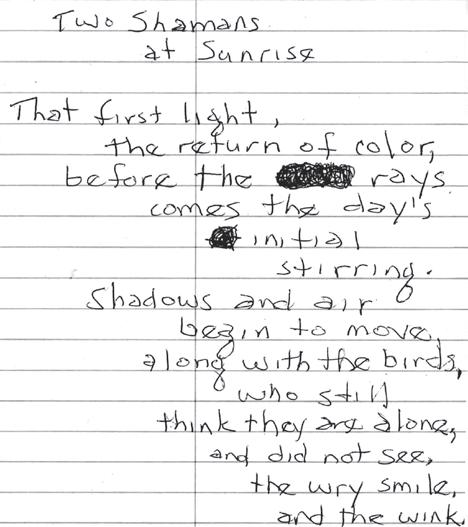 Two Shamans
at Sunrise
That first light,
the return of color,
before the rays
comes the day's
initial
stirring.
Shadows and air
begin to move,
along with the birds,
who still
think they are alone,
and did not see,
the wry smile,
and the wink.